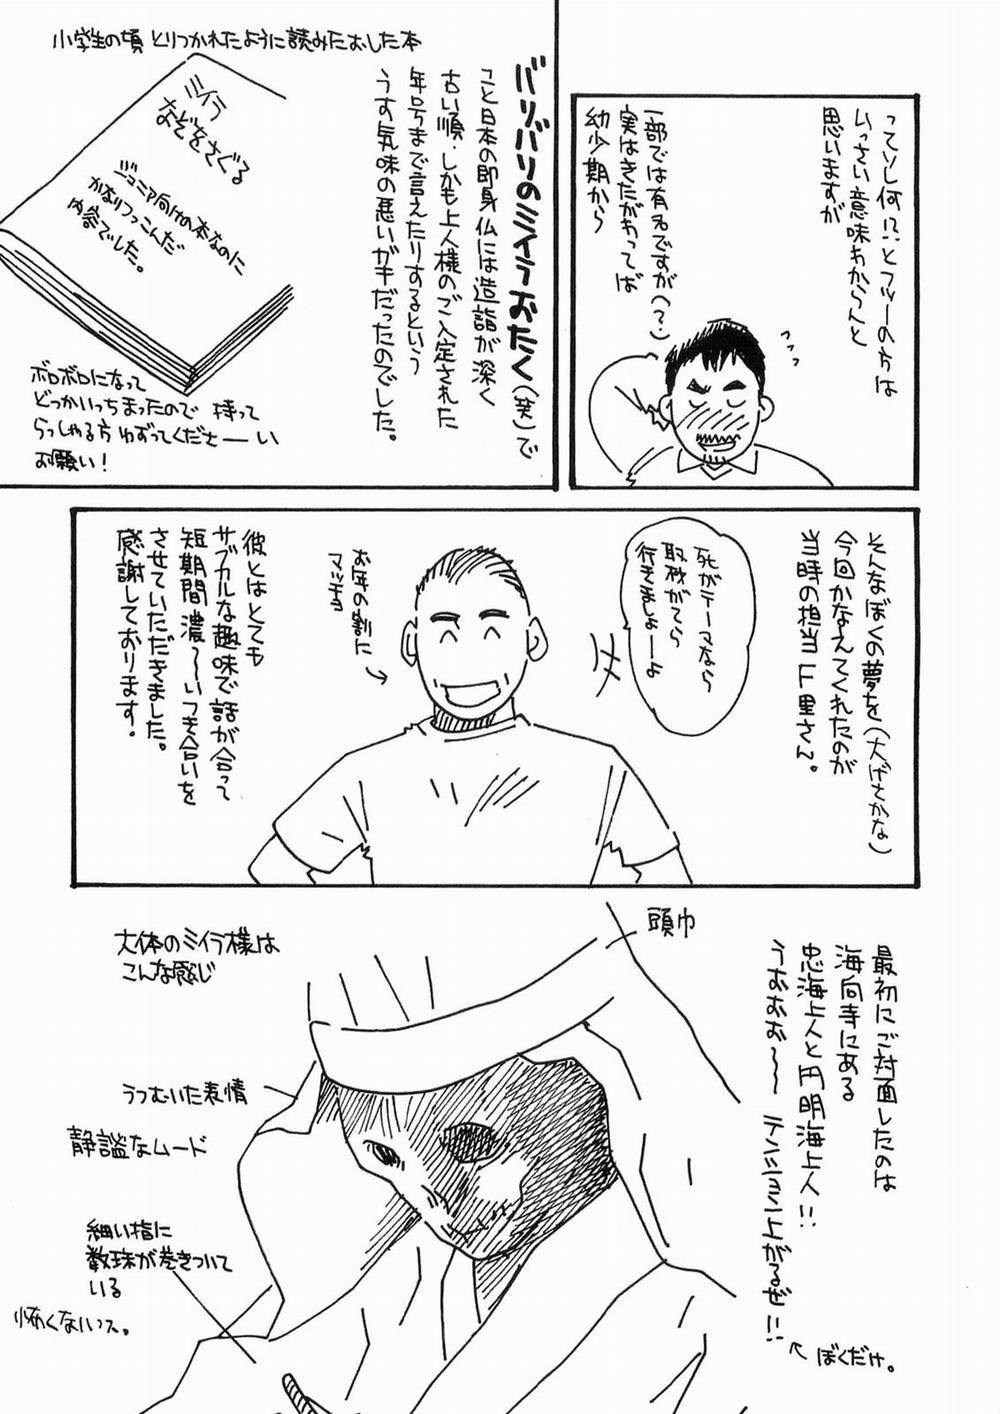 ってソレ何!?とフツーの方は
いっさい意味わからんと
思いますが
一部では有名ですが(?)
実はきたがわってば
幼少期から
バリバリのミイラおたく(笑)で
こと日本の即身仏には造詣が深く
古い順・しかも上人様のご入定された
年号まで言えたりするという
うす気味の悪いガキだったのでした。
小学生の頃とりつかれたように読みたおした本
ミイラ
なぞをさぐる
ジュニア向けの本なのに
かなりフッこんだ
内容でした。
ボロボロになって
どっかいっちまったので 持って
らっしゃる方ゆずってくださーーい
お願い!
そんなぼくの夢を(大げさかな)
今回かなえてくれたのが
当時の担当F里さん。
死がテーマなら
取材がてら
行きましょーよ
お年の割に
マッチョ
彼とはとても
サブカルな趣味で話が合って
短期間濃〜いつき合いを
させていただきました。
感謝しております!
最初にご対面したのは
海向寺にある
忠海上人と円明海上人!!
うおおお〜〜 テンション上がるぜ!!
ぼくだけ。
頭巾
大体のミイラ様は
こんな感じ
うつむいた表情
静謐なムード
細い指に
数珠が巻きついて
いる
怖くないっス。